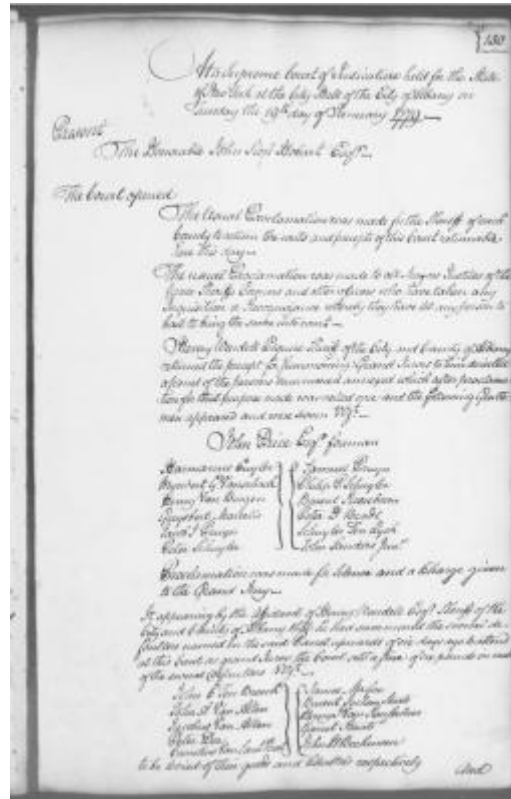 130
At a Supreme Court of Judicature held for the State
of New York at the City Hall of the City of Albany on
Tuesday the 19th day of January 1779
Present
The Honourable John Sloss Hobart Esqr
The Court opened
The Usual Proclamation was made for the Sheriff of each
County to return the writs and precepts of this Court returnable
here this day
The usual Proclamation was made to all Mayors Justices of the
Peace Sheriffs Coroners and other officers who have taken any
Inquisition or Recognizance whereby they have let any person to
bail to bring the same into court
Henry Wendell Esquire Sheriff of the City and County of Albany
returned the precept for summoning Grand Jurors to him directed
a pannel of the persons summoned annexed which after proclama
tion for that purpose made was called over and the following Gentle
men appeared and were sworn Vizt
John Price Esqr foreman
Harmanus
Henry Van
Philip P. Schuyler
Peter Schuyler
Schuyler Ten Eyck
John Sanders Junr
Proclamation was made for silence and a Charge given
to the Grand Jury
It appearing by the Affidavit of Henry Wendell Esqr Sheriff of the
City and County of Albany that he had summoned the several de
faulters named in the said Pannel upwards of six days ago to attend
at this Court as grand Jurors the Court sett a fine of six pounds on each
of the several defaulters Vizt
John Ten Broeck
John Van Allen
Van Allen
Peter
Cornelius Van
James
to be levied of their goods and Chattles respectively
And